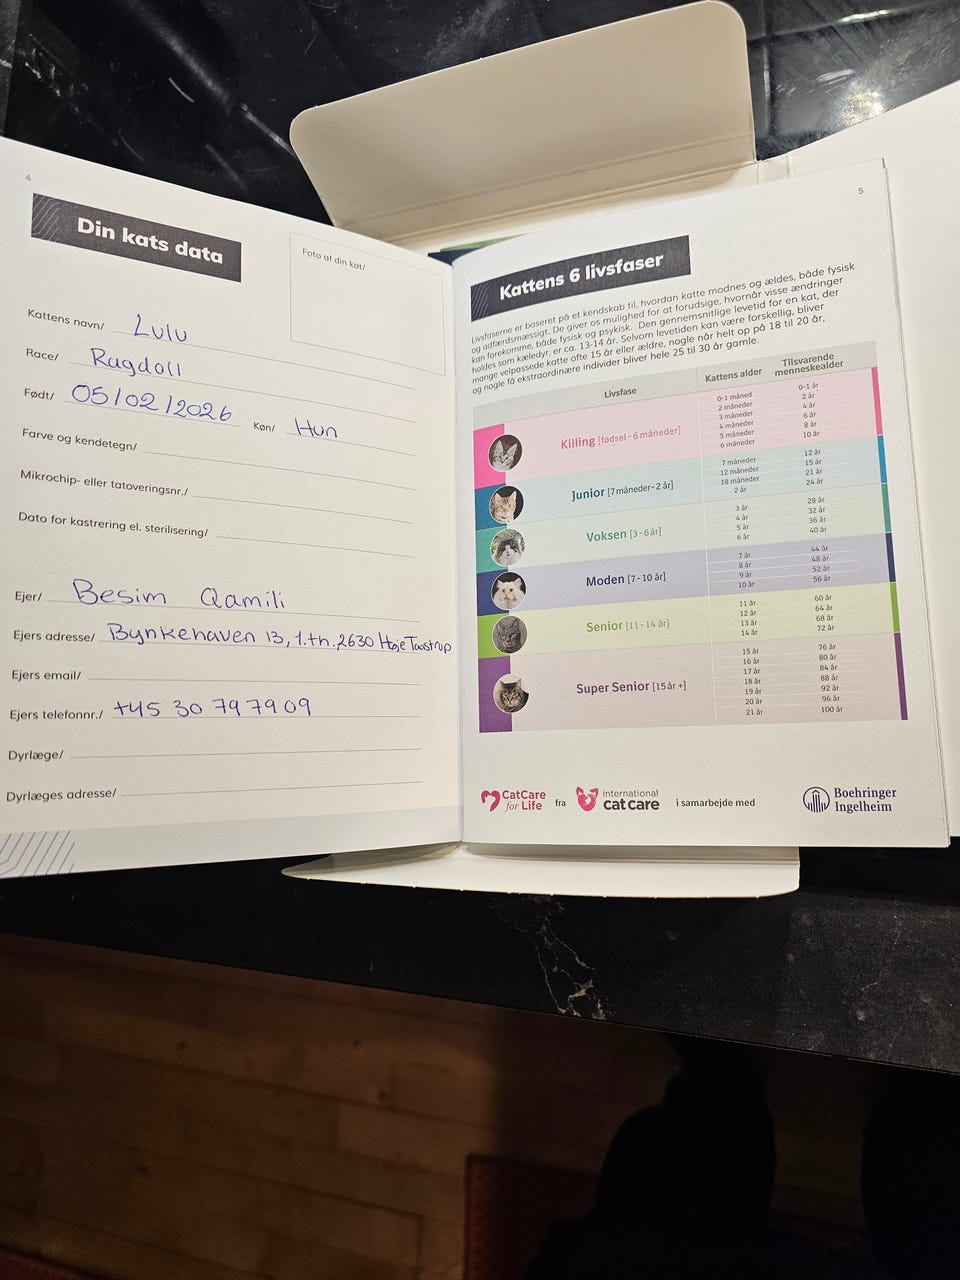 4
Din kats data
Foto af din kat/
Kattens navn/ Lulu
Race/ Ragdoll
Født/ 05/02/2026 Køn/ Hun
Farve og kendetegn/
Mikrochip- eller tatoveringsnr./
Dato for kastrering el. sterilisering/
Ejer/ Besim Qamili
Ejers adresse/ Bynkehaven 13, 1.th., 2630 Høje Taastrup
Ejers email/
Ejers telefonnr./ +45 30 79 79 09
Dyrlæge/
Dyrlæges adresse/
5
Kattens 6 livsfaser
Livsfaserne er baseret på et kendskab til, hvordan katte modnes og ældes, både fysisk
og adfærdsmæssigt. De giver os mulighed for at forudsige, hvornår visse ændringer
kan forekomme, både fysisk og psykisk. Den gennemsnitlige levetid for en kat, der
holdes som kæledyr, er ca. 13-14 år. Selvom levetiden kan være forskellig, bliver
mange velpassede katte ofte 15 år eller ældre, nogle når helt op på 18 til 20 år,
og nogle få ekstraordinære individer bliver hele 25 til 30 år gamle.
Livsfase Kattens alder Tilsvarende
menneskealder
Killing [fødsel - 6 måneder]
0-1 måned 0-1 år
2 måneder 2 år
3 måneder 4 år
4 måneder 6 år
5 måneder 8 år
6 måneder 10 år
Junior [7 måneder - 2 år]
7 måneder 12 år
12 måneder 15 år
18 måneder 21 år
2 år 24 år
Voksen [3 - 6 år]
3 år 28 år
4 år 32 år
5 år 36 år
6 år 40 år
Moden [7 - 10 år]
7 år 44 år
8 år 48 år
9 år 52 år
10 år 56 år
Senior [11 - 14 år]
11 år 60 år
12 år 64 år
13 år 68 år
14 år 72 år
Super Senior [15 år +]
15 år 76 år
16 år 80 år
17 år 84 år
18 år 88 år
19 år 92 år
20 år 96 år
21 år 100 år
CatCare
for Life
fra
international
cat care
i samarbejde med
Boehringer
Ingelheim